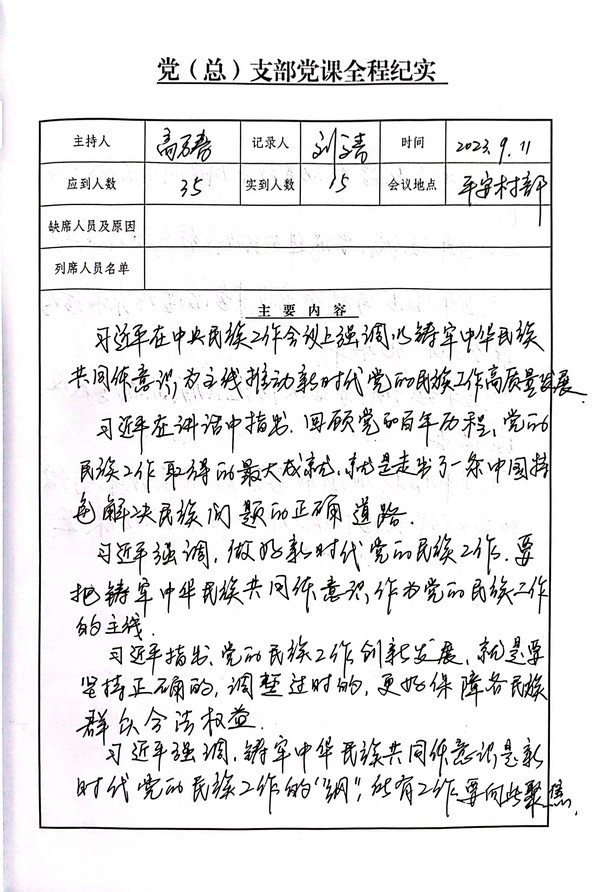 党（总）支部党课全程纪实
主持人 记录人 时间 2023.9.11
应到人数 35 实到人数 15 会议地点 平安村部
缺席人员及原因
列席人员名单
主要内容
习近平在中央民族工作会议上强调,以铸牢中华民族
共同体意识为主线推动新时代党的民族工作高质量发展.
习近平在讲话中指出.回顾党的百年历程,党的
民族工作取得的最大成就,就是走出了一条中国特
色解决民族问题的正确道路.
习近平强调,做好新时代党的民族工作.要
把铸牢中华民族共同体意识作为党的民族工作
的主线.
习近平指出,党的民族工作创新发展,就是要
坚持正确的,调整过时的,更好保障各民族
群众合法权益.
习近平强调,铸牢中华民族共同体意识是新
时代党的民族工作的“纲”,所有工作要向此聚焦.